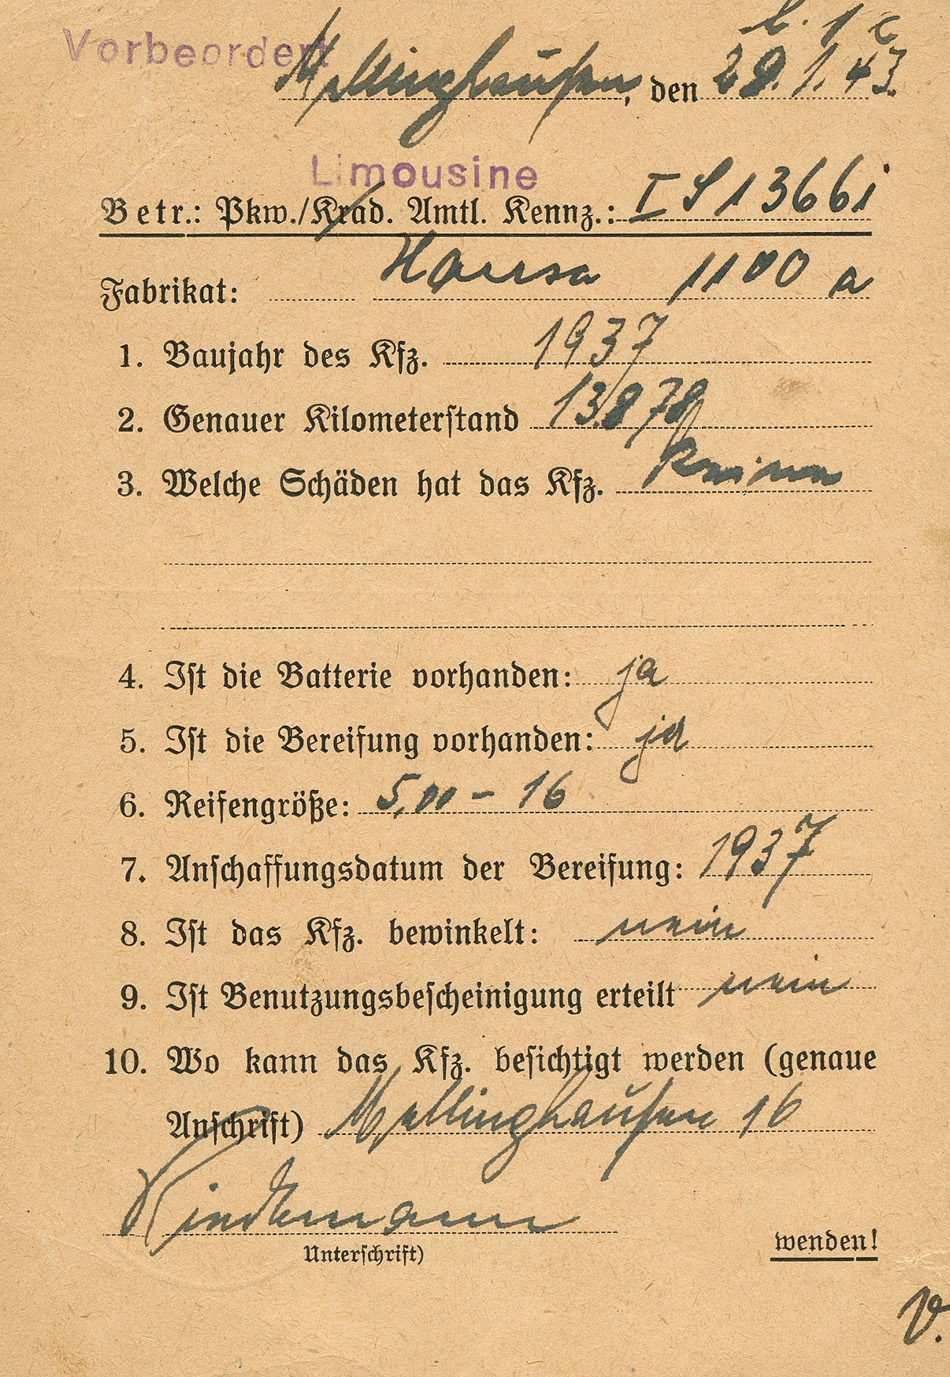 b. 1 c
Vorbeordert
Mellinghausen, den 28.1.43.
Limousine
Betr.: Pkw./Krad. Amtl. Kennz.: I S 13661
Fabrikat: Hansa 1100 a
1. Baujahr des Kfz. 1937
2. Genauer Kilometerstand 13878
3. Welche Schäden hat das Kfz. keine
4. Ist die Batterie vorhanden: ja
5. Ist die Bereifung vorhanden: ja
6. Reifengröße: 5,00 - 16
7. Anschaffungsdatum der Bereifung: 1937
8. Ist das Kfz. bewinkelt: nein
9. Ist Benutzungsbescheinigung erteilt nein
10. Wo kann das Kfz. besichtigt werden (genaue
Anschrift) Mellinghausen 16
Unterschrift)
wenden!
V.